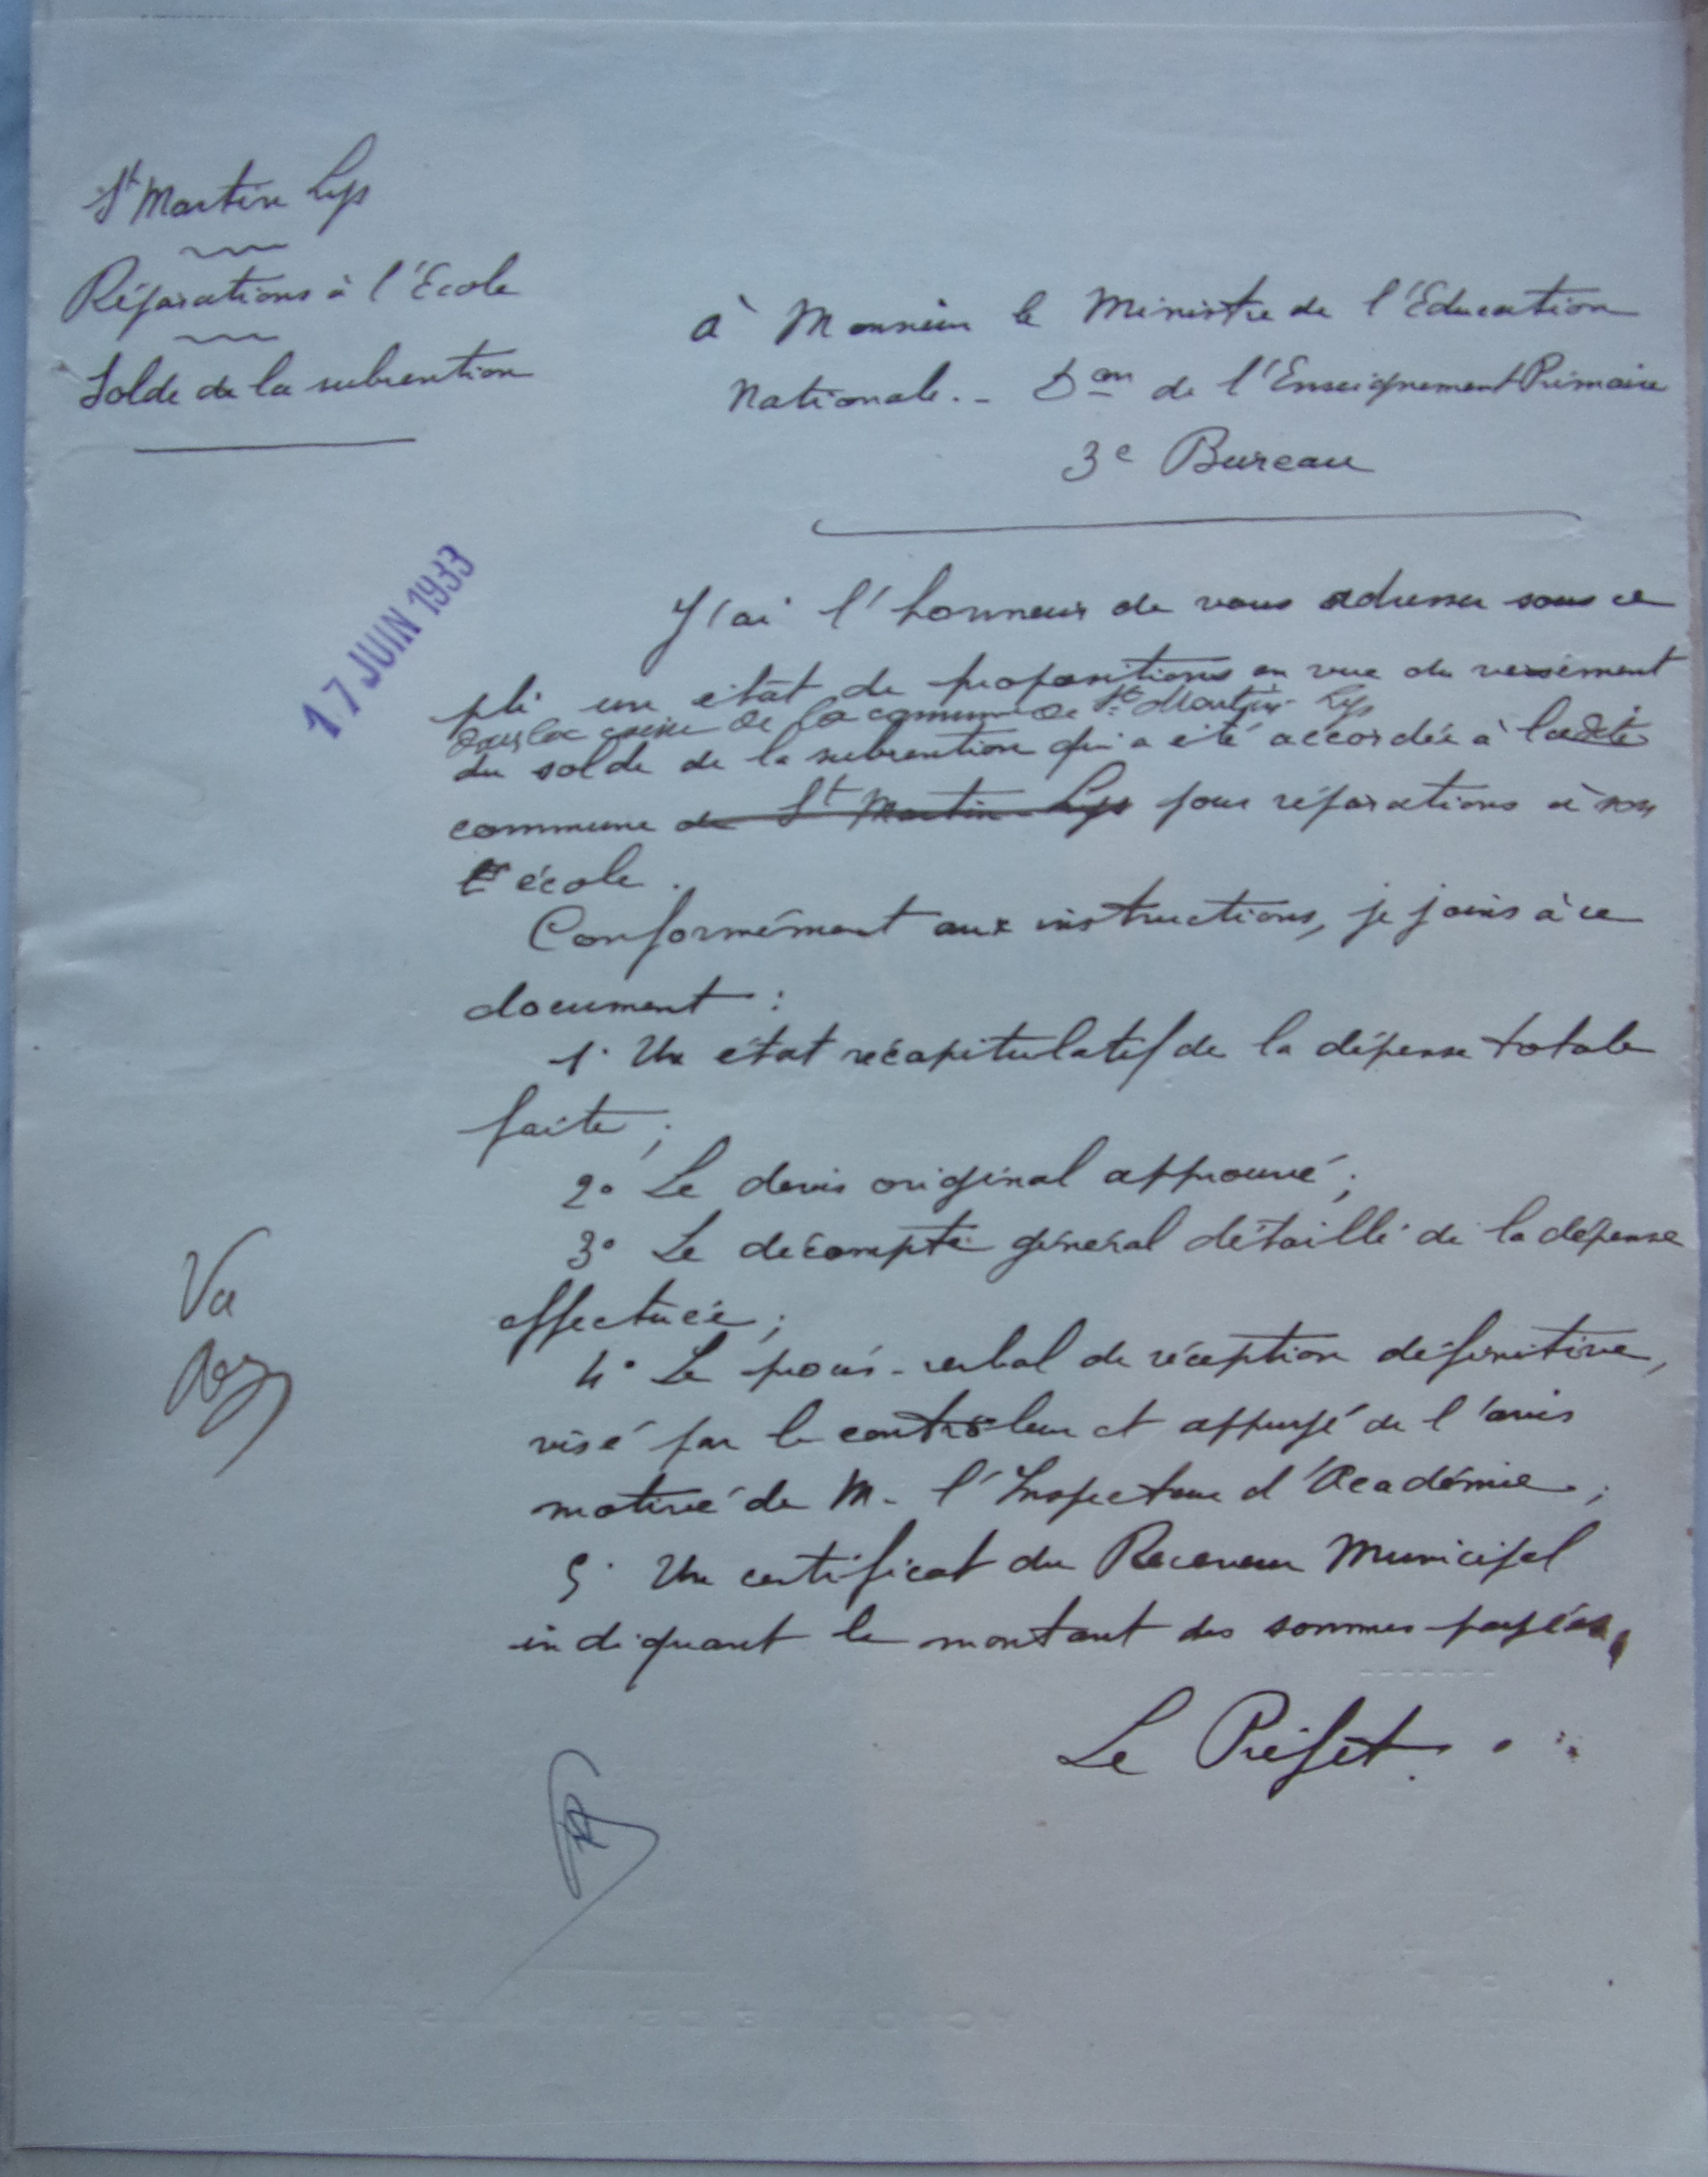 St Martin Lys
Réparations à l'Ecole
Solde de la subvention
à Monsieur le Ministre de l'Education
Nationale.- Don de l'Enseignement Primaire
3e Bureau
17 JUIN 1933
J'ai l'honneur de vous adresser sous ce
pli un état de propositions en vue du versement
dans la caisse de la commune de St Martin-Lys
du solde de la subvention qui a été accordée à ladite
commune de St Martin-Lys pour réparations à son
école.
Conformément aux instructions, je joins à ce
document :
1° Un état récapitulatif de la dépense totale
faite ;
2° Le devis original approuvé ;
3° Le décompte général détaillé de la dépense
effectuée ;
4° Le procès-verbal de réception définitive,
visé par le contrôleur et appuyé de l'avis
motivé de M. l'Inspecteur d'Académie ;
5° Un certificat du Receveur Municipal
indiquant le montant des sommes payées.
Vu
Le Préfet.